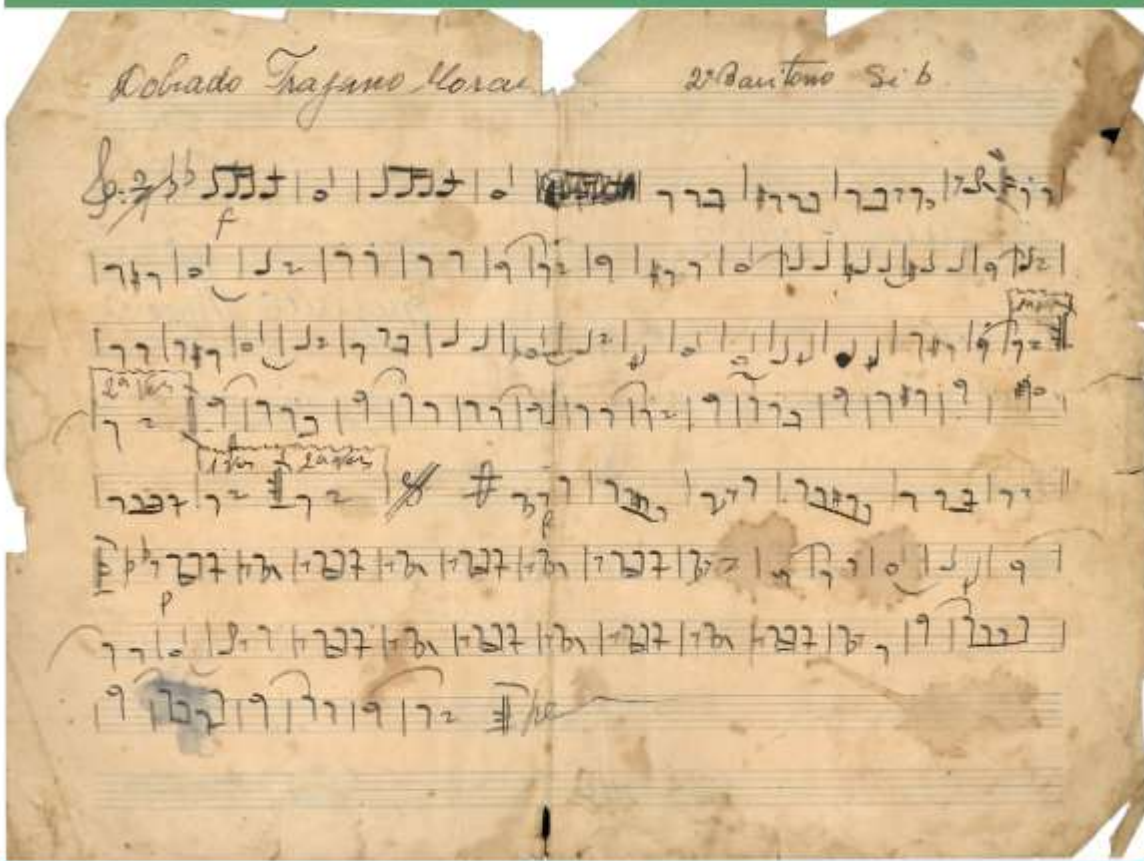 Dobrado Trajano Moraes 2º Baritono Si b
f
1ª vez
2ª vez
1ª vez 2ª vez
f
p